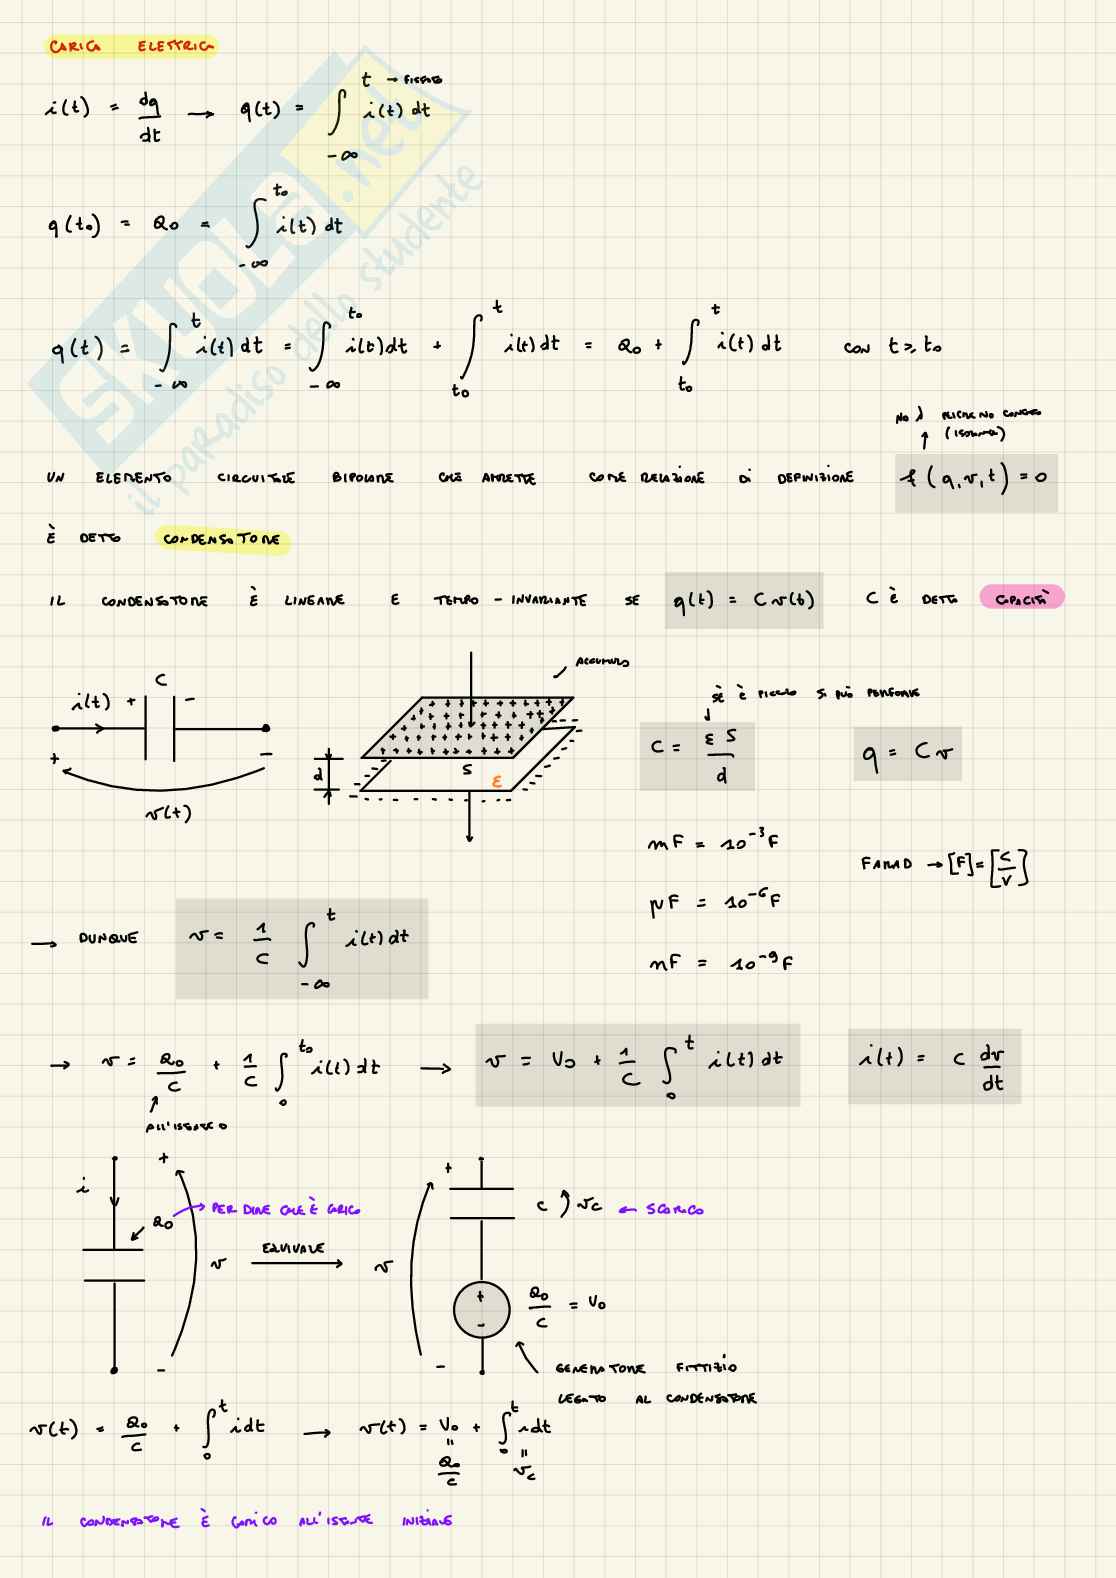 CARICA ELETTRICA
i(t) = dq/dt → q(t) = ∫_{-∞}^{t → FISSATO} i(t) dt
q(t₀) = Q₀ = ∫_{-∞}^{t₀} i(t) dt
q(t) = ∫_{-∞}^{t} i(t) dt = ∫_{-∞}^{t₀} i(t) dt + ∫_{t₀}^{t} i(t) dt = Q₀ + ∫_{t₀}^{t} i(t) dt CON t ≥ t₀
NO
UN ELEMENTO CIRCUITALE BIPOLARE CHE AMMETTE COME RELAZIONE DI DEFINIZIONE f(q,v,t) = 0
È DETTO CONDENSATORE
IL CONDENSATORE È LINEARE E TEMPO-INVARIANTE SE q(t) = C v(t) C È DETTA CAPACITÀ
i(t) + C -
+ -
v(t)
ACCUMULO
d S ε
SE È PICCOLO SI PUÒ PERFORARE
C = ε S / d q = C v
mF = 10⁻³ F
FARAD → [F] = [C/V]
μF = 10⁻⁶ F
nF = 10⁻⁹ F
→ DUNQUE v = 1/C ∫_{-∞}^{t} i(t) dt
→ v = Q₀/C + 1/C ∫_{0}^{t₀} i(t) dt → v = V₀ + 1/C ∫_{0}^{t} i(t) dt i(t) = C dv/dt
i + Q₀ → PER DIRE CHE È CARICO
v EQUIVALE v
-
+ C v_C ← SCARICO
+ - Q₀/C = V₀
- GENERATORE FITTIZIO
LEGATO AL CONDENSATORE
v(t) = Q₀/C + ∫_{0}^{t} i dt → v(t) = V₀ + ∫_{0}^{t} i dt
= Q₀/C = v_C
IL CONDENSATORE È CARICO ALL'ISTANTE INIZIALE
SKUOLA.net
il paradiso dello studente